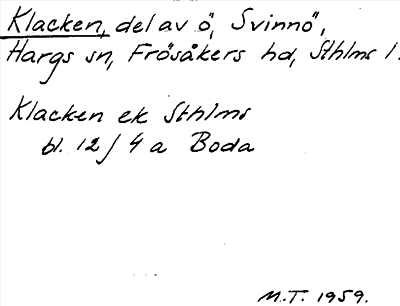 Klacken, del av ö, Svinnö,
Hargs sn, Frösåkers hd, Sthlms l.
Klacken ek Sthlms
bl. 12/4 a Boda
M.T. 1959.